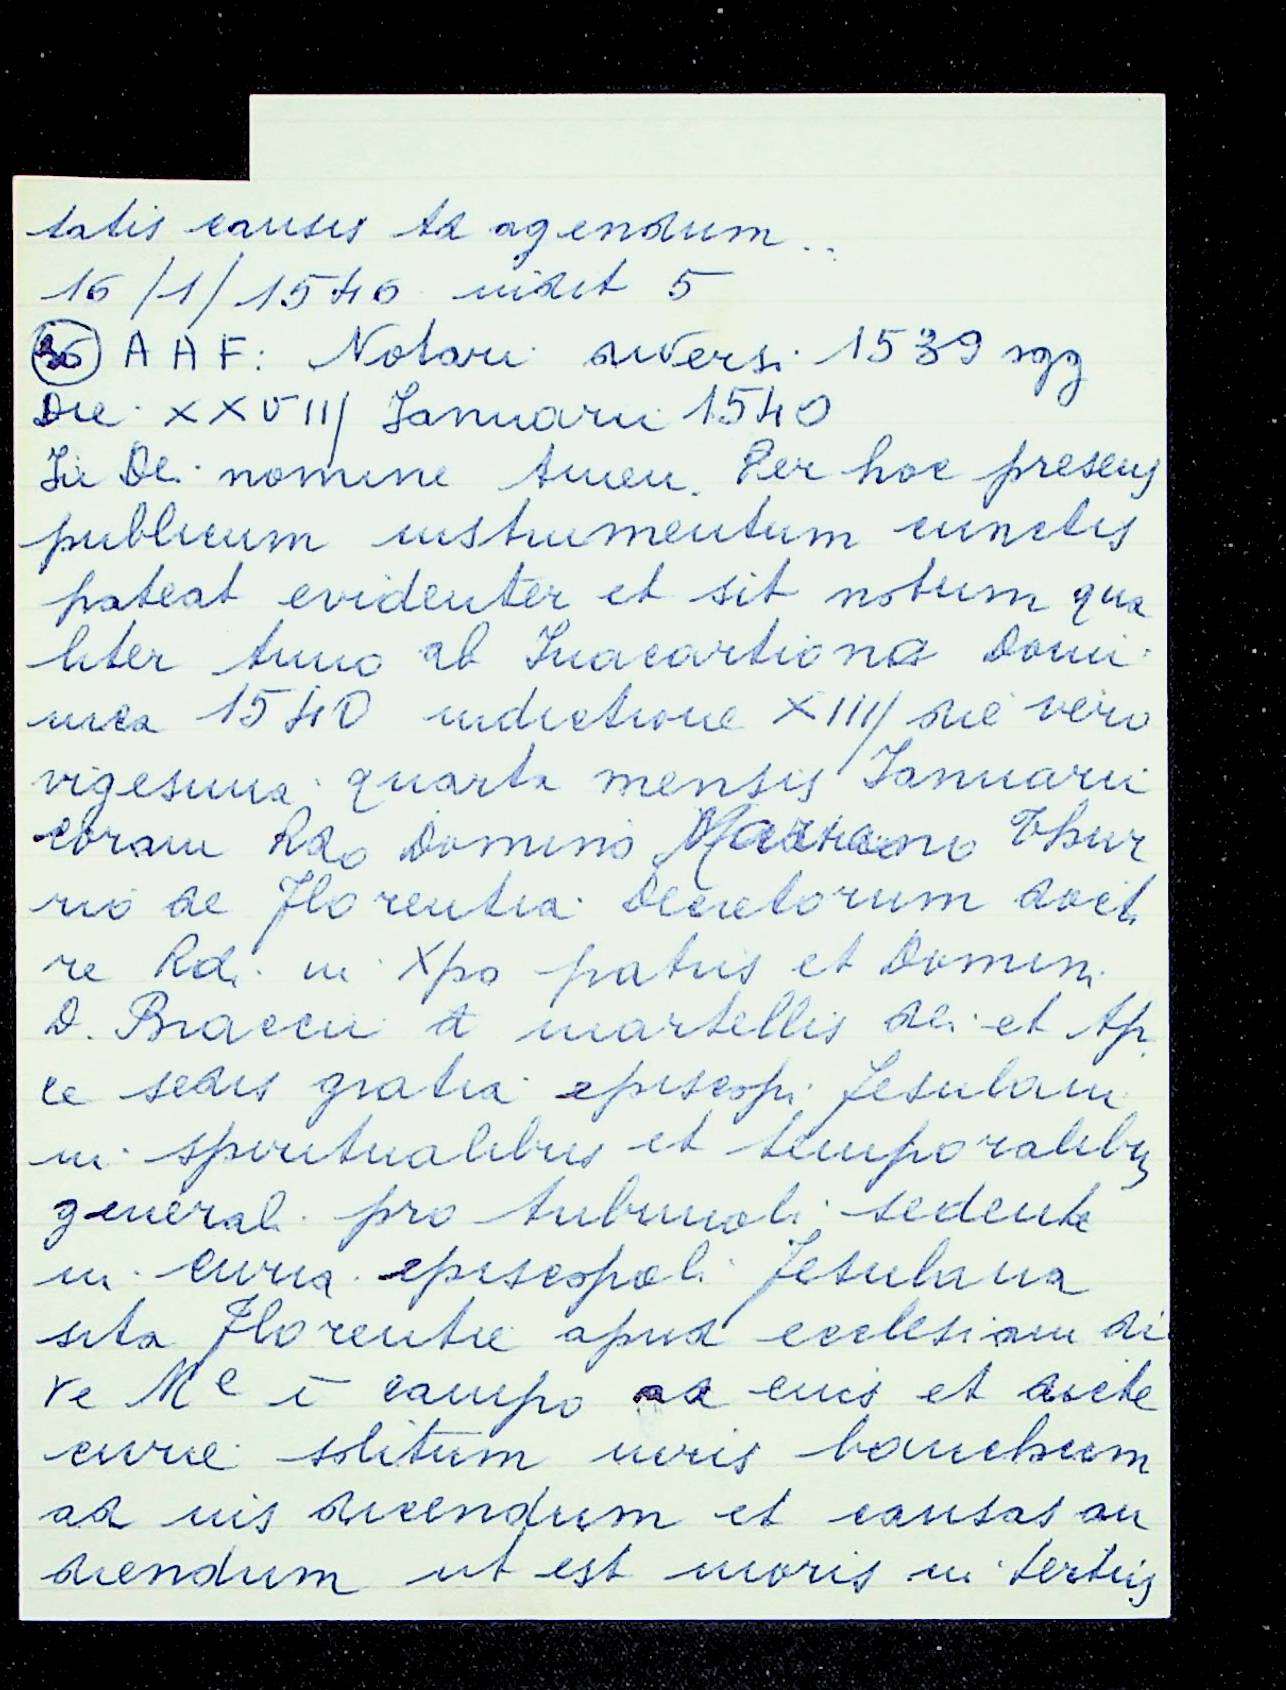 tatis causis ad agendum..
16/1/1540 indict 5
36 A A F: Notari diversi 1539 sgg
Die XXVIII Januarii 1540
In Dei nomine Amen. Per hoc presens
publicum instrumentum cunctis
pateat evidenter et sit notum qua
liter Anno ab Inacartiona Domi
nica 1540 indictione XIII die vero
vigesima quarta mensis Januarii
coram Rdo Domino Thur
rio de Florentia Decretorum docto
re Rdi in Xpo patris et Domini
D. Braccii de martellis dei et Ap.
ce sedis gratia episcopi Fesulani
in spiritualibus et temporalibus
generali pro tribunali sedente
in curia episcopali Fesulana
sita Florentie apud ecclesiam di
ve Me i campo ad eius et dicte
curie solitum iuris banchum
ad ius dicendum et causas au
diendum ut est moris in tertiis